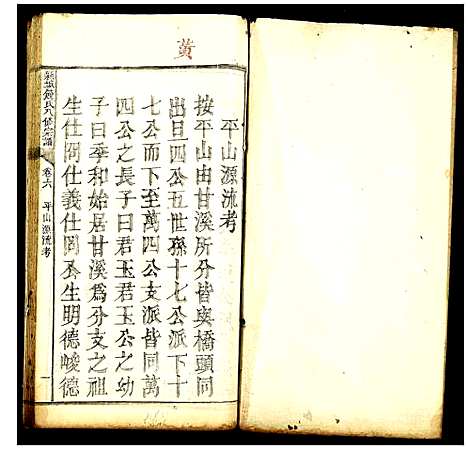 黄
平山源流考
按平山由甘溪所分皆與橋頭同
出旦四公五世孫十七公派下十
七公而下至萬四公支派皆同萬
四公之長子曰君玉君玉公之幼
子曰季和始居甘溪為分支之祖
生仕岡仕義仕岡公生明德峻德
鍾氏八修宗譜
卷六 平山源流考 一